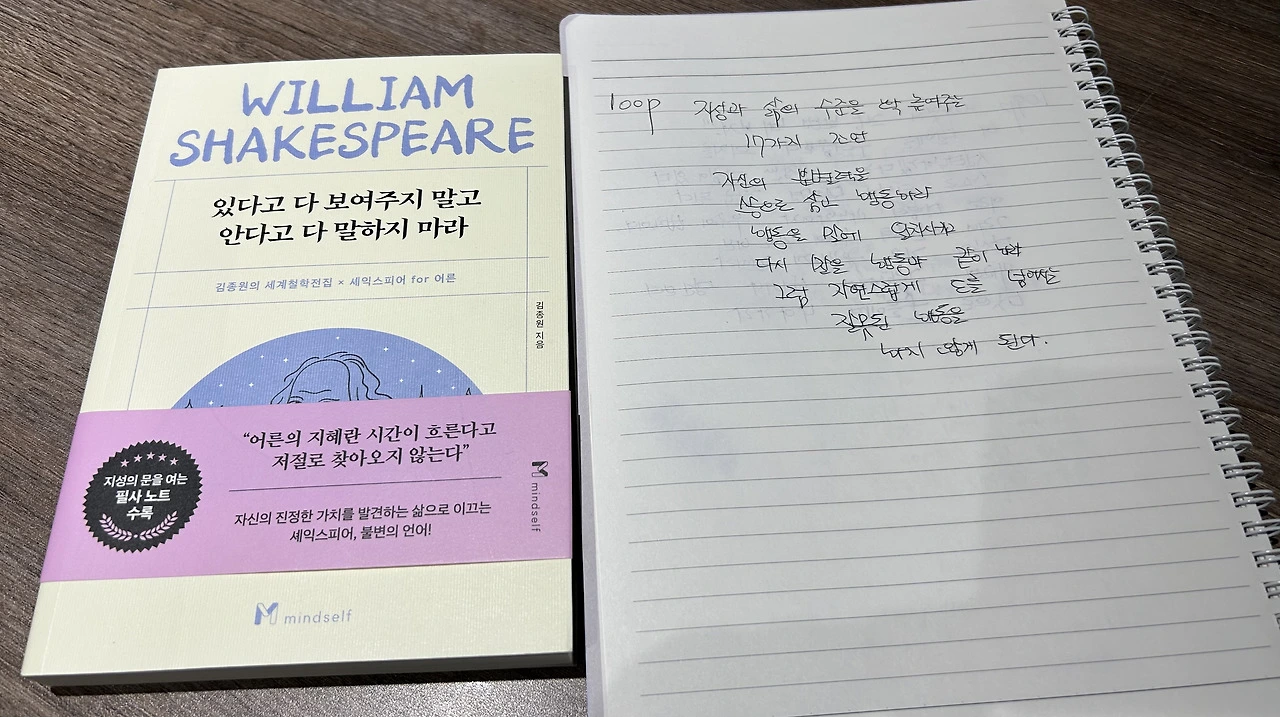 WILLIAM
SHAKESPEARE
있다고 다 보여주지 말고
안다고 다 말하지 마라
김종원의 세계철학전집 × 셰익스피어 for 어른
김종원 지음
“어른의 지혜란 시간이 흐른다고
저절로 찾아오지 않는다”
자신의 진정한 가치를 발견하는 삶으로 이끄는
셰익스피어, 불변의 언어!
지성의 문을 여는
필사 노트
수록
mindself
mindself
100p 지성과 삶의 수준을 싹 높여주는
17가지 조언
자신의 분별력을
스승으로 삼고 행동하라
행동을 말에 일치시키고
다시 말을 행동과 같이 하라
그럼 자연스럽게 도를 넘어서는
잘못된 행동을
하지 않게 된다.